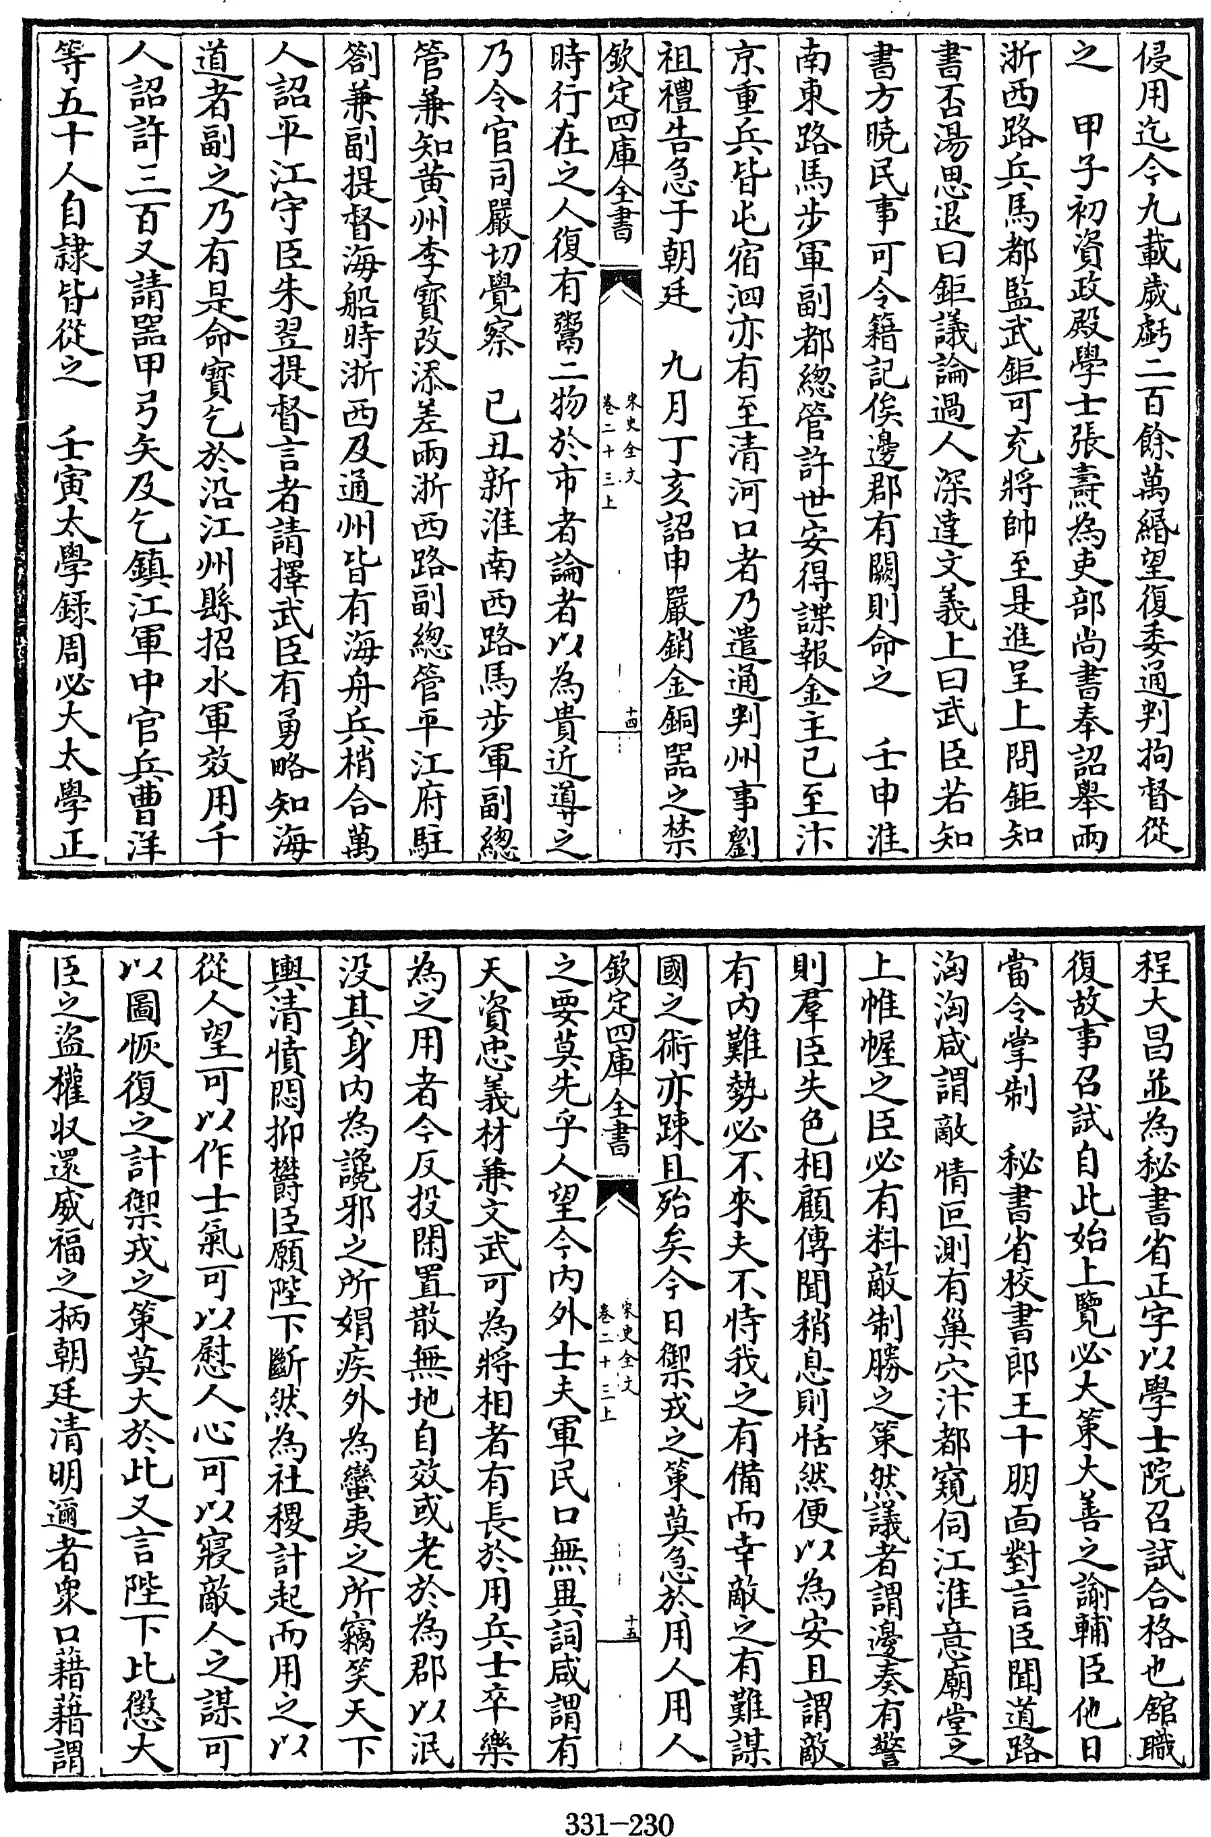 侵用迄今九載歲虧二百餘萬緡望復委通判拘督從
之　甲子初資政殿學士張壽為吏部尚書奉詔舉兩
浙西路兵馬都監武鉅可充將帥至是進呈上問鉅知
書否湯思退曰鉅議論過人深達文義上曰武臣若知
書方曉民事可令籍記俟邊郡有闕則命之　壬申淮
南東路馬步軍副都總管許世安得諜報金主已至汴
京重兵皆屯宿泗亦有至清河口者乃遣通判州事劉
祖禮告急于朝廷　九月丁亥詔申嚴銷金銅器之禁
欽定四庫全書
宋史全文
卷二十三上
十四
時行在之人復有鬻二物於市者論者以為貴近導之
乃令官司嚴切覺察　已丑新淮南西路馬步軍副總
管兼知黄州李寳改添差兩浙西路副總管平江府駐
劄兼副提督海船時浙西及通州皆有海舟兵梢合萬
人詔平江守臣朱翌提督言者請擇武臣有勇略知海
道者副之乃有是命寳乞於沿江州縣招水軍效用千
人詔許三百又請器甲弓矢及乞鎮江軍中官兵曹洋
等五十人自隸皆從之　壬寅太學錄周必大太學正
程大昌並為秘書省正字以學士院召試合格也館職
復故事召試自此始上覽必大策大善之諭輔臣他日
當令掌制　秘書省校書郎王十朋面對言臣聞道路
洶洶咸謂敵情叵測有巢穴汴都窺伺江淮意廟堂之
上帷幄之臣必有料敵制勝之策然議者謂邊奏有警
則羣臣失色相顧傳聞稍息則恬然便以為安且謂敵
有内難勢必不來夫不恃我之有備而幸敵之有難謀
國之術亦踈且殆矣今日禦戎之策莫急於用人用人
欽定四庫全書
宋史全文
卷二十三上
十五
之要莫先乎人望今内外士夫軍民口無異詞咸謂有
天資忠義材兼文武可為將相者有長於用兵士卒樂
為之用者今反投閑置散無地自效或老於為郡以泯
没其身内為讒邪之所娼疾外為蠻夷之所竊笑天下
輿情憤悶抑欝臣願陛下斷然為社稷計起而用之以
從人望可以作士氣可以慰人心可以寢敵人之謀可
以圖恢復之計禦戎之策莫大於此又言陛下比懲大
臣之盜權收還威福之柄朝廷清明邇者衆口藉藉謂
331-230